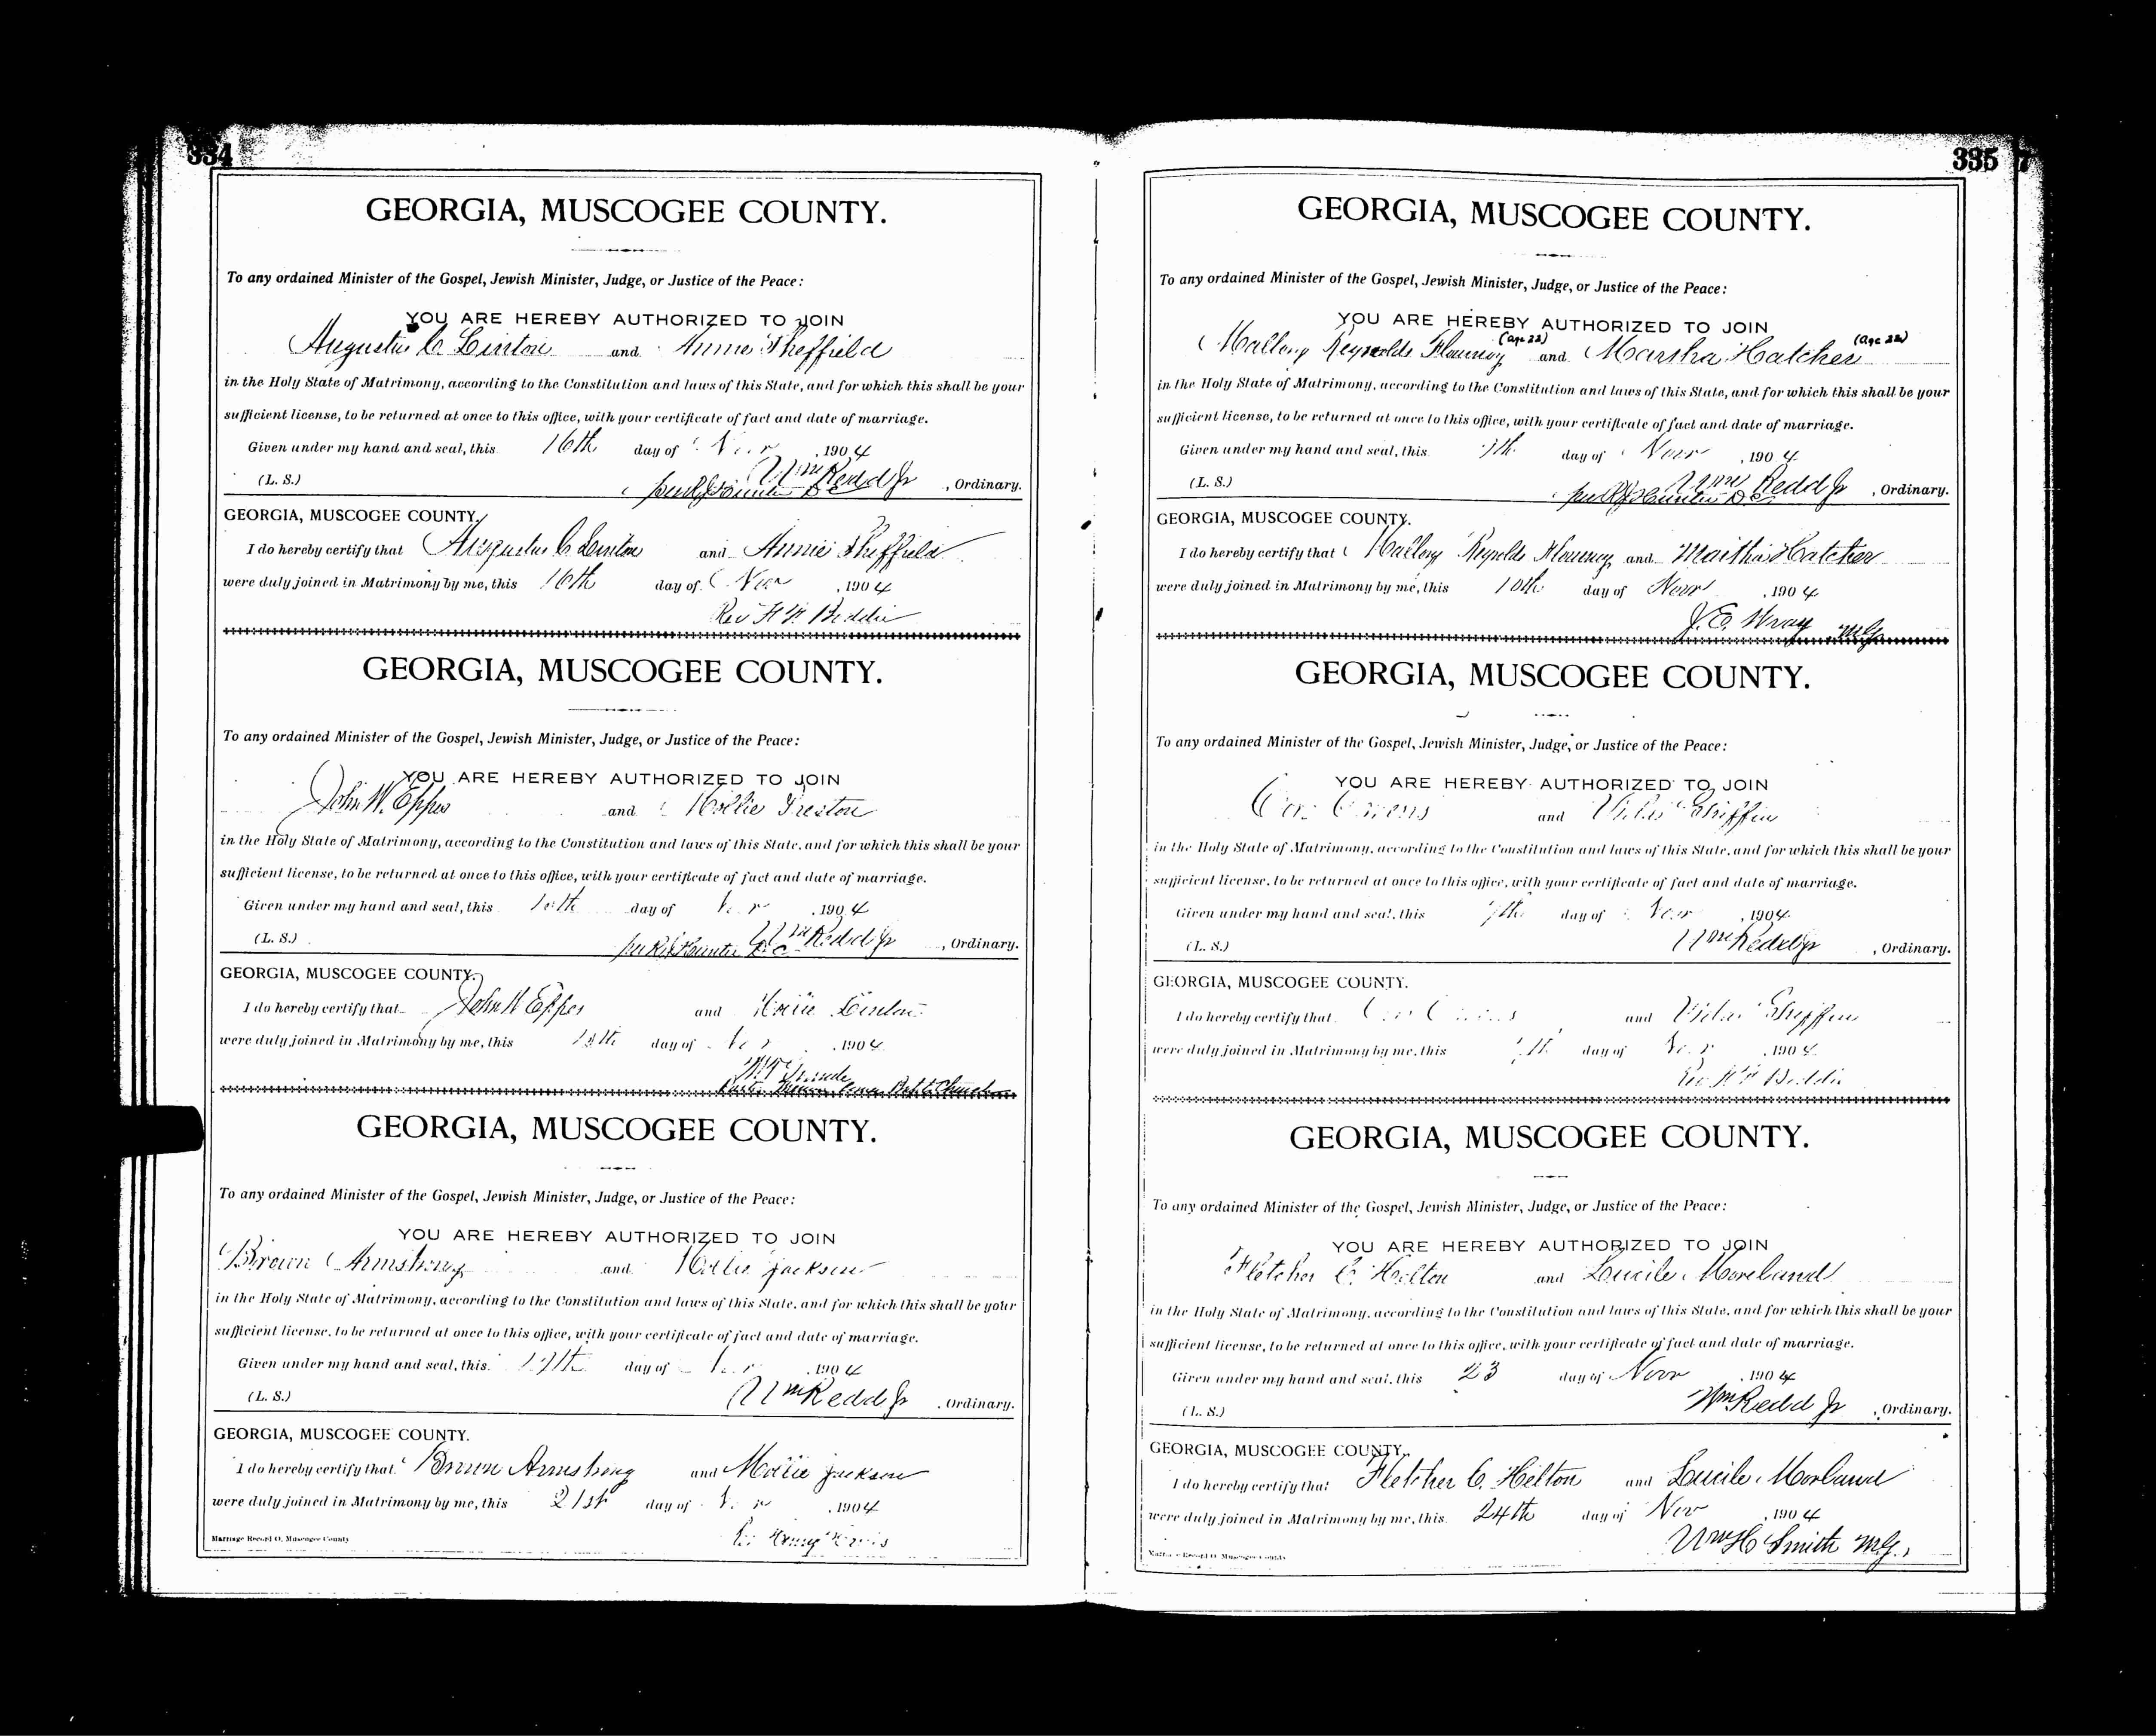 334
GEORGIA, MUSCOGEE COUNTY.
To any ordained Minister of the Gospel, Jewish Minister, Judge, or Justice of the Peace:
YOU ARE HEREBY AUTHORIZED TO JOIN
Augustus C. Linton and Annie Sheffield
in the Holy State of Matrimony, according to the Constitution and laws of this State, and for which this shall be your
sufficient license, to be returned at once to this office, with your certificate of fact and date of marriage.
Given under my hand and seal, this 16th day of Nov , 1904
(L. S.) Wm Redd Jr , Ordinary.
GEORGIA, MUSCOGEE COUNTY.
I do hereby certify that Augustus C Linton and Annie Sheffield
were duly joined in Matrimony by me, this 16th day of Nov , 1904
Rev
GEORGIA, MUSCOGEE COUNTY.
To any ordained Minister of the Gospel, Jewish Minister, Judge, or Justice of the Peace:
YOU ARE HEREBY AUTHORIZED TO JOIN
John W. Eppes and
in the Holy State of Matrimony, according to the Constitution and laws of this State, and for which this shall be your
sufficient license, to be returned at once to this office, with your certificate of fact and date of marriage.
Given under my hand and seal, this day of , 1904
(L. S.) Wm Redd Jr , Ordinary.
GEORGIA, MUSCOGEE COUNTY.
I do hereby certify that John W Eppes and
were duly joined in Matrimony by me, this day of , 1904
Church
GEORGIA, MUSCOGEE COUNTY.
To any ordained Minister of the Gospel, Jewish Minister, Judge, or Justice of the Peace:
YOU ARE HEREBY AUTHORIZED TO JOIN
Brown Armstrong and Mollie Jackson
in the Holy State of Matrimony, according to the Constitution and laws of this State, and for which this shall be your
sufficient license, to be returned at once to this office, with your certificate of fact and date of marriage.
Given under my hand and seal, this day of , 1904
(L. S.) Wm Redd Jr , Ordinary.
GEORGIA, MUSCOGEE COUNTY.
I do hereby certify that Brown Armstrong and Mollie Jackson
were duly joined in Matrimony by me, this 21st day of , 1904
Marriage Record O, Muscogee County
335
GEORGIA, MUSCOGEE COUNTY.
To any ordained Minister of the Gospel, Jewish Minister, Judge, or Justice of the Peace:
YOU ARE HEREBY AUTHORIZED TO JOIN
Mallory Reynolds Flournoy (age 23) and Marsha Hatcher
in the Holy State of Matrimony, according to the Constitution and laws of this State, and for which this shall be your
sufficient license, to be returned at once to this office, with your certificate of fact and date of marriage.
Given under my hand and seal, this day of Nov , 1904
(L. S.) Wm Redd Jr , Ordinary.
GEORGIA, MUSCOGEE COUNTY.
I do hereby certify that Mallory Reynolds Flournoy and Martha Hatcher
were duly joined in Matrimony by me, this 10th day of Nov , 1904
J. E. Wray MG
GEORGIA, MUSCOGEE COUNTY.
To any ordained Minister of the Gospel, Jewish Minister, Judge, or Justice of the Peace:
YOU ARE HEREBY AUTHORIZED TO JOIN
and Griffin
in the Holy State of Matrimony, according to the Constitution and laws of this State, and for which this shall be your
sufficient license, to be returned at once to this office, with your certificate of fact and date of marriage.
Given under my hand and seal, this day of Nov , 1904
(L. S.) Wm Redd Jr , Ordinary.
GEORGIA, MUSCOGEE COUNTY.
I do hereby certify that and Griffin
were duly joined in Matrimony by me, this day of Nov , 1904
Rev
GEORGIA, MUSCOGEE COUNTY.
To any ordained Minister of the Gospel, Jewish Minister, Judge, or Justice of the Peace:
YOU ARE HEREBY AUTHORIZED TO JOIN
Fletcher C. Helton and Lucile Moreland
in the Holy State of Matrimony, according to the Constitution and laws of this State, and for which this shall be your
sufficient license, to be returned at once to this office, with your certificate of fact and date of marriage.
Given under my hand and seal, this 23 day of Nov , 1904
(L. S.) Wm Redd Jr , Ordinary.
GEORGIA, MUSCOGEE COUNTY.
I do hereby certify that Fletcher C. Helton and Lucile Moreland
were duly joined in Matrimony by me, this 24th day of Nov , 1904
Wm H Smith M.G.
Marriage Record O, Muscogee County